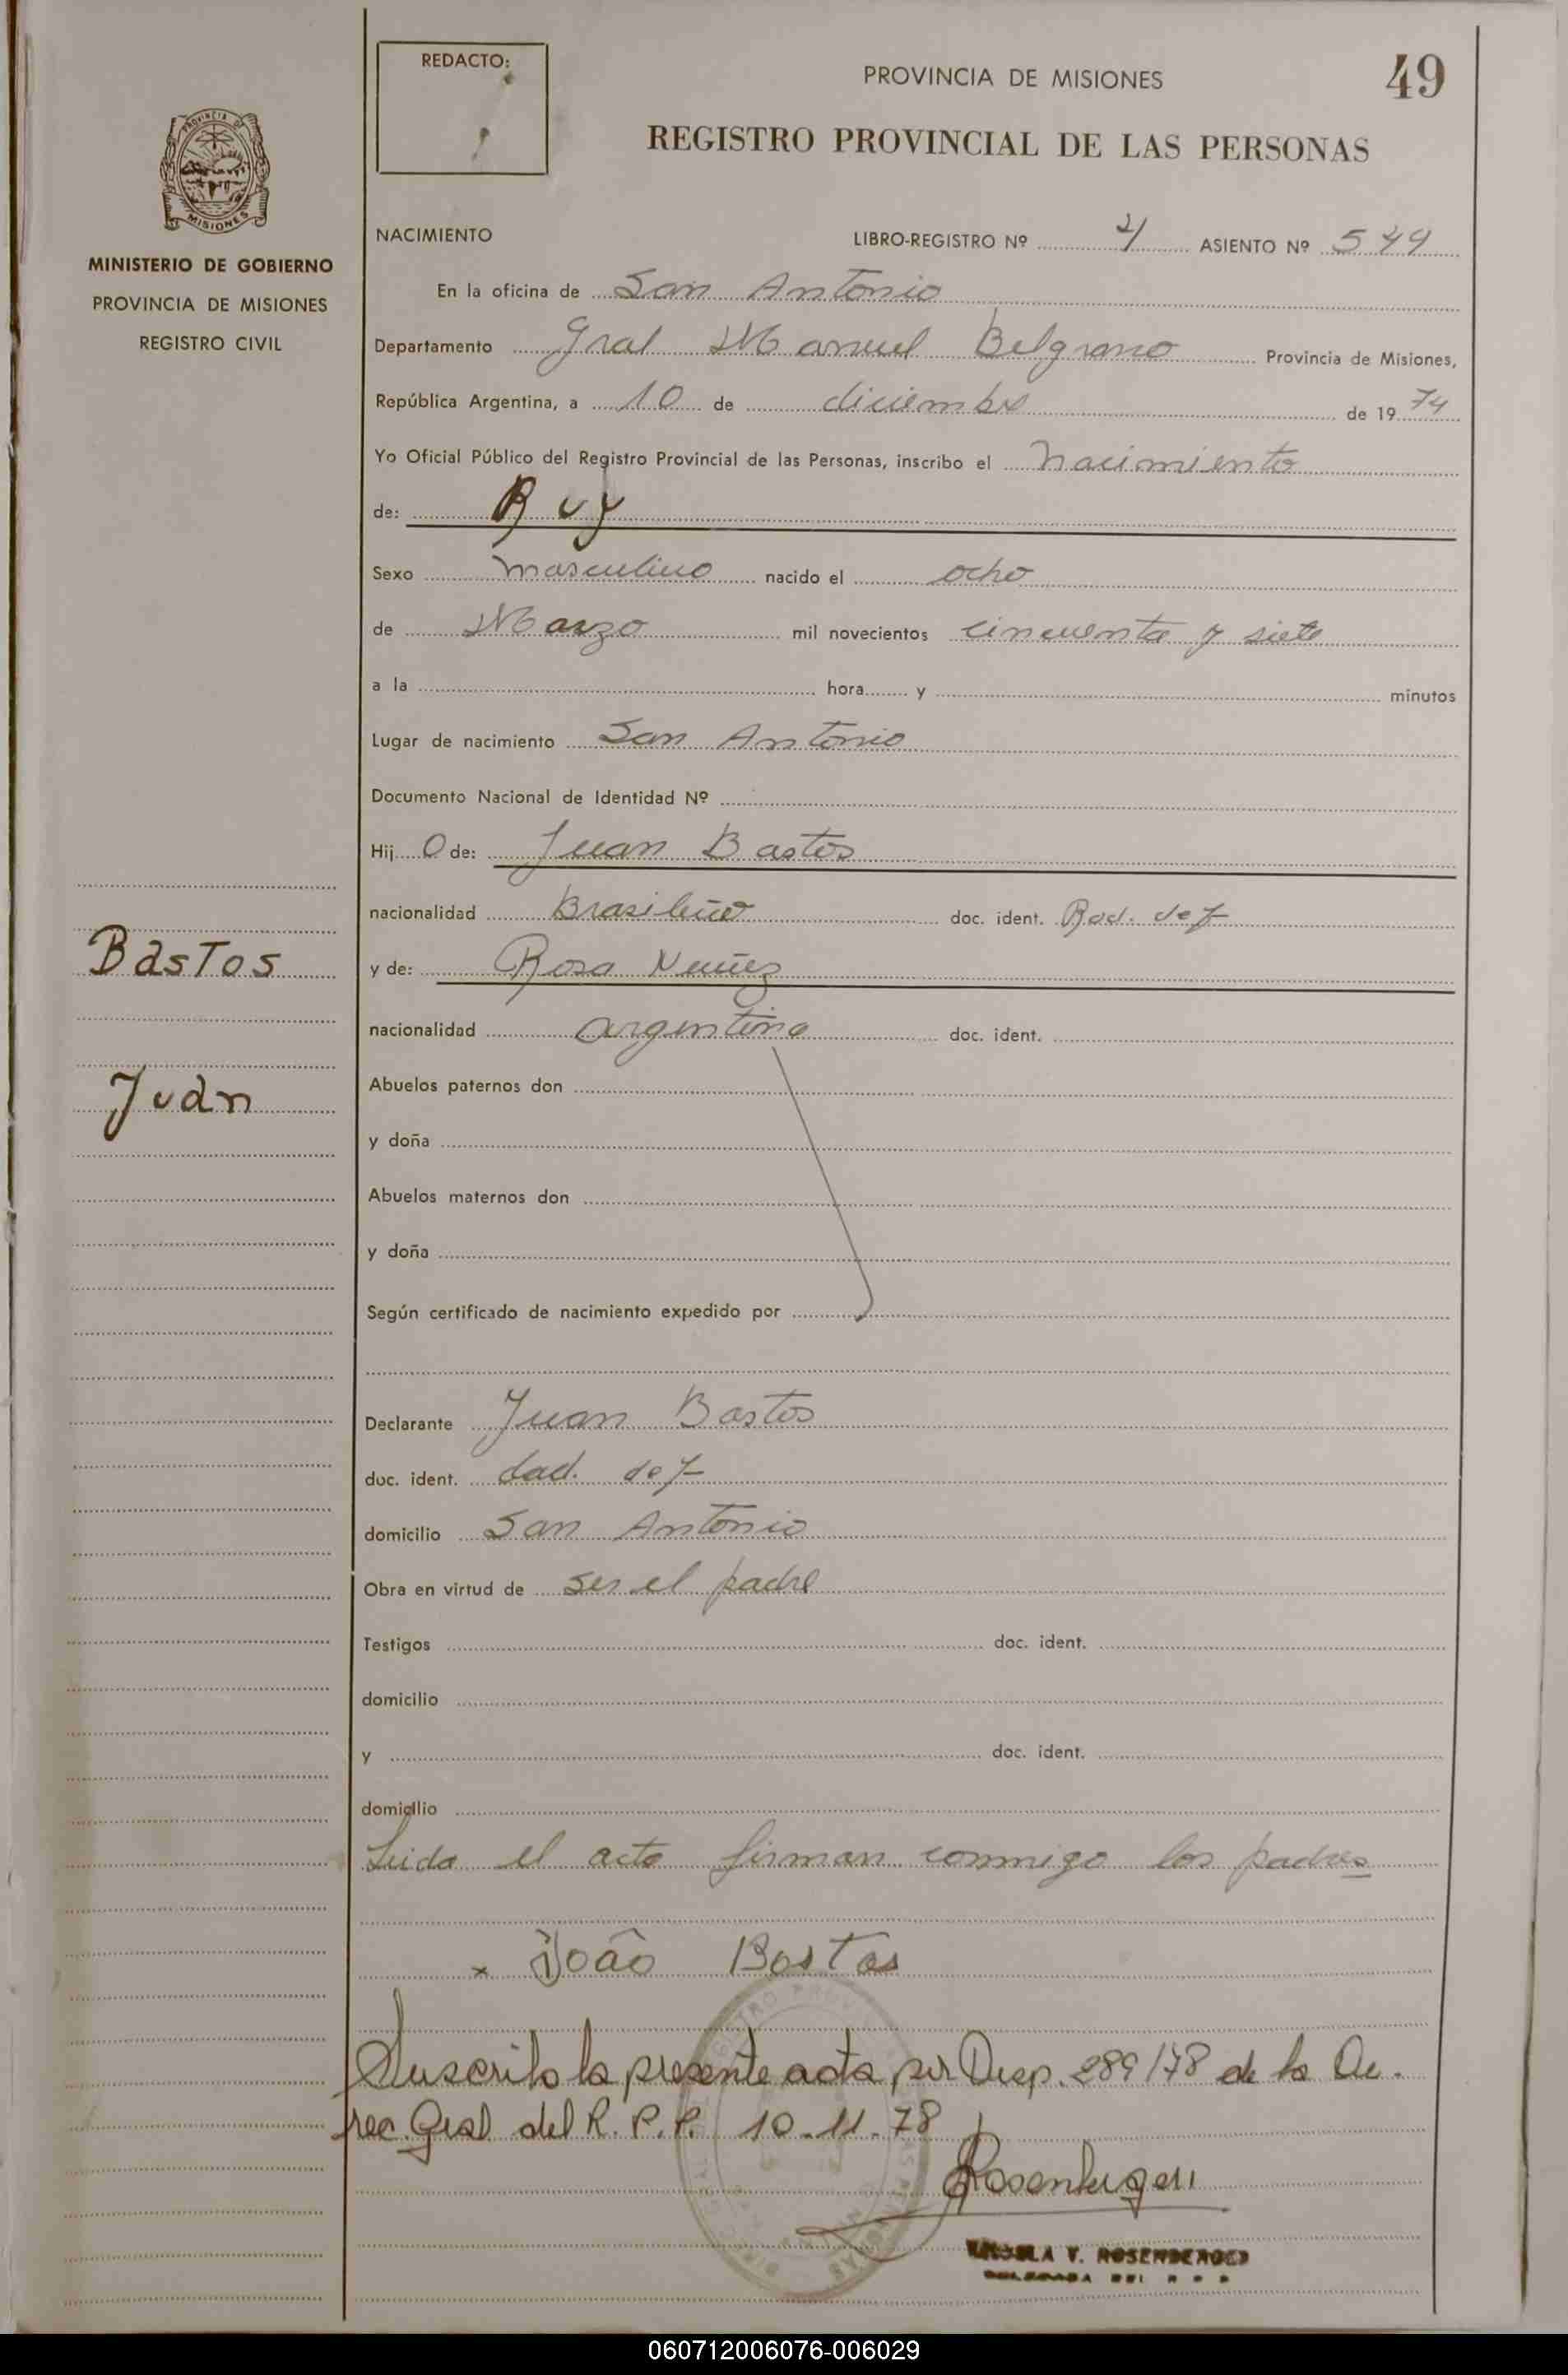 REDACTO:
PROVINCIA DE MISIONES
49
REGISTRO PROVINCIAL DE LAS PERSONAS
PROVINCIA DE
MISIONES
MINISTERIO DE GOBIERNO
PROVINCIA DE MISIONES
REGISTRO CIVIL
NACIMIENTO LIBRO-REGISTRO Nº ASIENTO Nº 549
En la oficina de San Antonio
Departamento Gral Manuel Belgrano Provincia de Misiones,
República Argentina, a 10 de diciembre de 1974
Yo Oficial Público del Registro Provincial de las Personas, inscribo el nacimiento
de: Ruy
Sexo masculino nacido el ocho
de Marzo mil novecientos cincuenta y siete
a la hora y minutos
Lugar de nacimiento San Antonio
Documento Nacional de Identidad Nº
Hijo de: Juan Bastos
nacionalidad Brasileño doc. ident.
y de: Rosa Nuñez
nacionalidad argentina doc. ident.
Abuelos paternos don
y doña
Abuelos maternos don
y doña
Según certificado de nacimiento expedido por
Bastos
Juan
Declarante Juan Bastos
doc. ident.
domicilio San Antonio
Obra en virtud de ser el padre
Testigos doc. ident.
domicilio
y doc. ident.
domicilio
Leida el acta firman conmigo los padres
x João Bastos
Suscrito la presente acta por Disp. 289/78 de la Di.
rec. Gral del R. P. P. 10-11-78
Rosenberger
V. ROSENBERGER
060712006076-006029